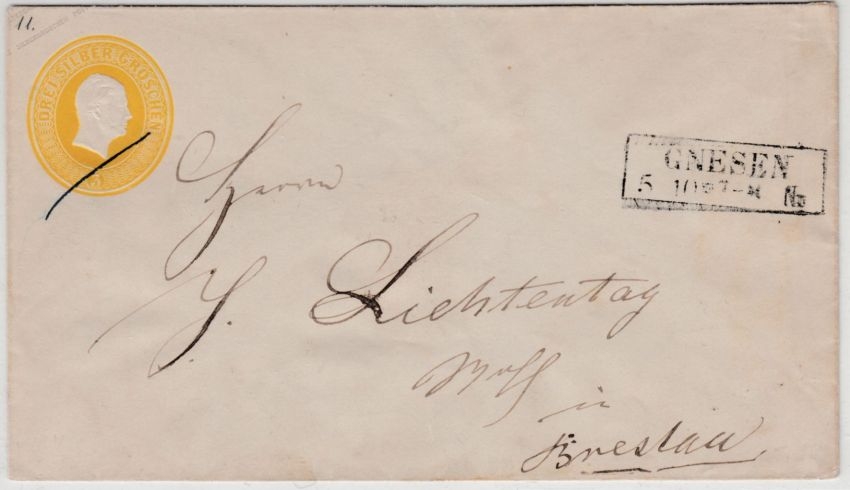 11.
DREI SILBER GROSCHEN
3
GNESEN
5 10
Herrn
J. Lichtentag
in
Breslau